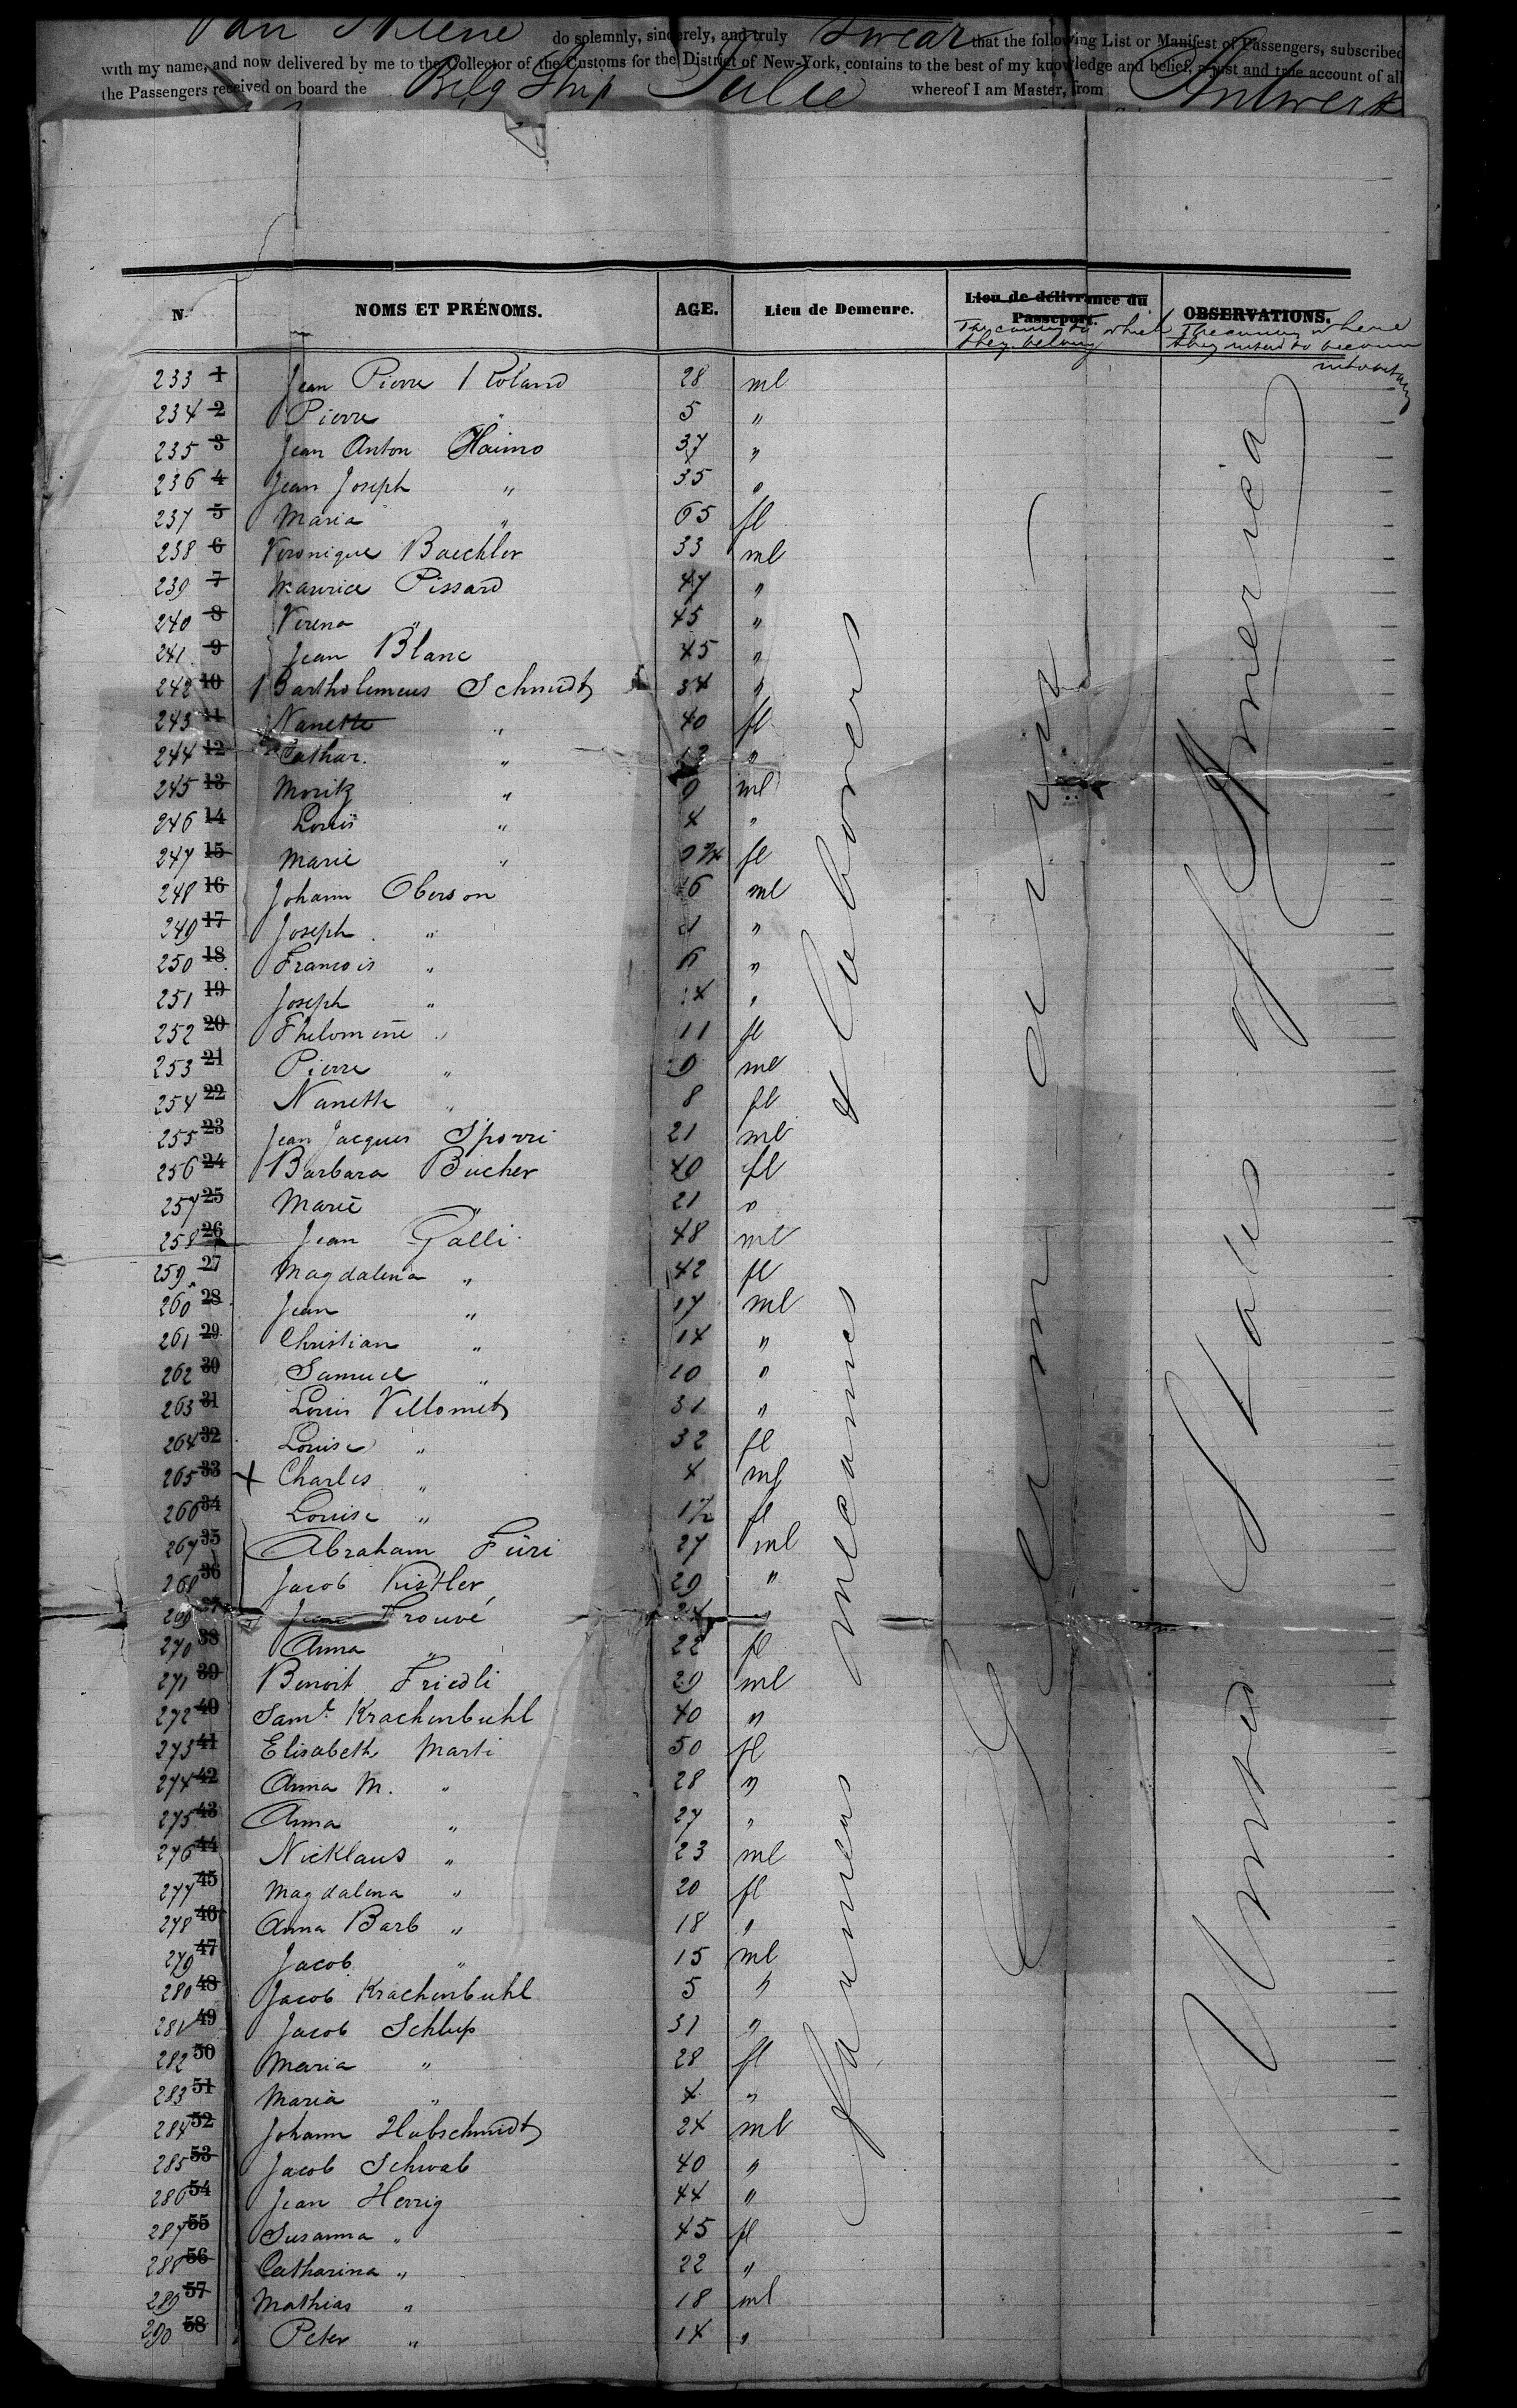 Van Stiene do solemnly, sincerely, and truly swear that the following List or Manifest of Passengers, subscribed
with my name, and now delivered by me to the Collector of the Customs for the District of New-York, contains to the best of my knowledge and belief, a just and true account of all
the Passengers received on board the Belg Ship Julie whereof I am Master, from Antwerp
N NOMS ET PRÉNOMS. AGE. Lieu de Demeure. Lieu de délivrance du Passeport. OBSERVATIONS.
The country to which they belong
The country where they intend to become
233 1 Jean Pierre Roland 28 ml
234 2 Pierre " 5 "
235 3 Jean Anton Haimo 37 "
236 4 Jean Joseph " 35 "
237 5 Maria " 65 fl
238 6 Veronique Baechler 33 ml
239 7 Maurice Pissard 47 "
240 8 Verena " 45 "
241 9 Jean Blanc 45 "
242 10 Bartholemeus Schmidt 34 "
243 11 Nanette " 40 fl
244 12 Cathar. " 12 "
245 13 Moritz " 9 ml
246 14 Louis " 4 "
247 15 Marie " fl
248 16 Johann Oberson ml
249 17 Joseph " "
250 18 Francois " "
251 19 Joseph " "
252 20 Philomene " 11 fl
253 21 Pierre " 9 ml
254 22 Nanette " 8 fl
255 23 Jean Jacques Sporri 21 ml
256 24 Barbara Bucher 40 fl
257 25 Marie " 21 "
258 26 Jean Galli 48 ml
259 27 Magdalena " 42 fl
260 28 Jean " 17 ml
261 29 Christian " 14 "
262 30 Samuel " 10 "
263 31 Louis Villomet 31 "
264 32 Louise " 32 fl
265 33 + Charles " 4 ml
266 34 Louise " 1½ fl
267 35 Abraham Füri 27 ml
268 36 Jacob Kistler 29 "
269 37 Jean Trouvé 24 "
270 38 Anna " 22 fl
271 39 Benoit Friedli 29 ml
272 40 Saml. Krachenbuhl 40 "
273 41 Elisabeth Marti 50 fl
274 42 Anna M. " 28 "
275 43 Anna " 27 "
276 44 Nicklaus " 23 ml
277 45 Magdalena " 20 fl
278 46 Anna Barb " 18 "
279 47 Jacob " 15 ml
280 48 Jacob Krachenbuhl 5 "
281 49 Jacob Schlup 31 "
282 50 Maria " 28 fl
283 51 Maria " 4 "
284 52 Johann Hubschmidt 24 ml
285 53 Jacob Schwab 40 "
286 54 Jean Herrig 44 "
287 55 Susanna " 45 fl
288 56 Catharina " 22 "
289 57 Mathias " 18 ml
290 58 Peter " 14 "
farmers mecanics & labourers
Germany
United States of America